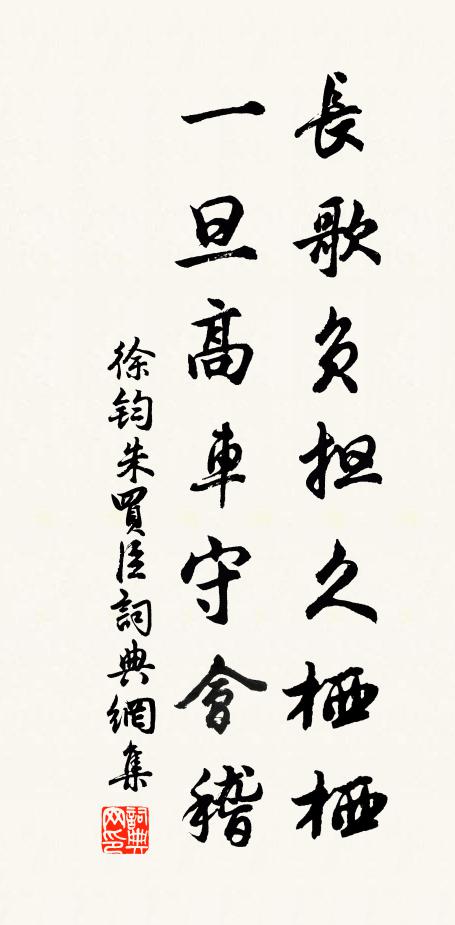 長歌負担久栖栖
一旦高車守會稽
徐鈞朱買臣詞典網集
詞典网印